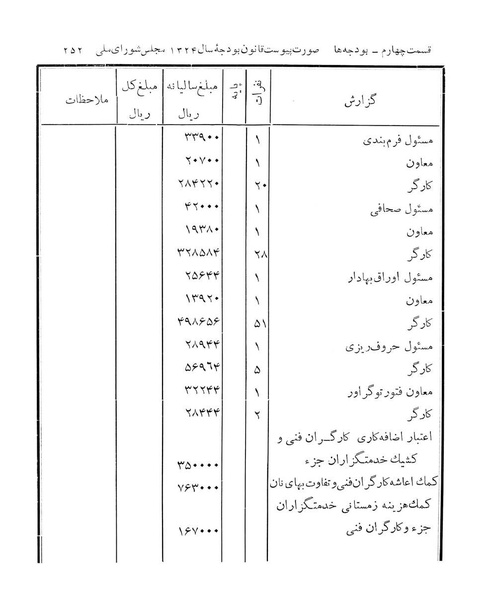 قسمت چهارم ـ بودجه‌ها صورت پیوست قانون بودجهٔ سال ۱۳۲۴ مجلس شورای ملی ۲۵۲
گزارش نفرات پایه مبلغ سالیانه ریال مبلغ کل ریال ملاحظات
مسئول فرم‌بندی ۱ ۳۳۹۰۰
معاون ۱ ۲۰۷۰۰
کارگر ۲۰ ۲۸۴۲۲۰
مسئول صحافی ۱ ۴۲۰۰۰
معاون ۱ ۱۹۳۸۰
کارگر ۲۸ ۳۲۸۵۸۴
مسئول اوراق بهادار ۱ ۲۵۶۴۴
معاون ۱ ۱۳۹۲۰
کارگر ۵۱ ۴۹۸۶۵۶
مسئول حروف‌ریزی ۱ ۲۸۹۴۴
کارگر ۵ ۵۶۹۶۴
معاون فتورتوگراور ۱ ۳۲۲۴۴
کارگر ۲ ۲۸۴۴۴
اعتبار اضافه‌کاری کارگران فنی و
کشیک خدمتگزاران جزء ۳۵۰۰۰۰
کمک اعاشه کارگران فنی و تفاوت بهای نان ۷۶۳۰۰۰
کمک هزینه زمستانی خدمتگزاران
جزء و کارگران فنی ۱۶۷۰۰۰